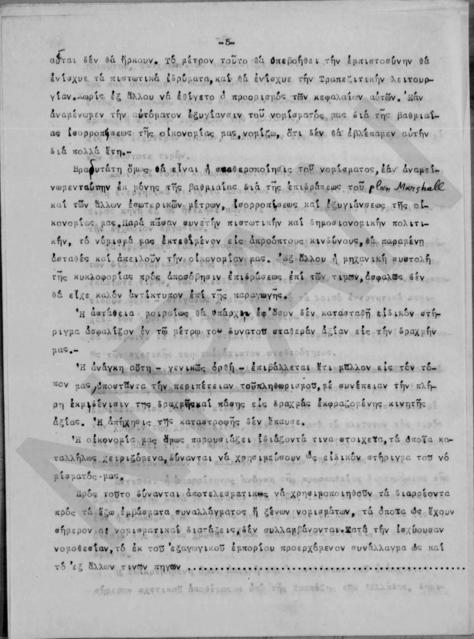 -5-
αὗται δὲν θὰ ἤρκουν. Τὸ μέτρον τοῦτο θὰ ὑπεβοήθει τὴν ἐμπιστοσύνην θὰ
ἐνίσχυε τὰ πιστωτικὰ ἱδρύματα, καὶ θὰ ἐνίσχυε τὴν Τραπεζιτικὴν λειτουρ-
γίαν. Χωρὶς ἐξ ἄλλου νὰ ἐθίγετο ὁ προορισμὸς τῶν κεφαλαίων αὐτῶν. Ἐὰν
ἀναμένωμεν τὴν αὐτόματον ἐξυγίανσιν τοῦ νομίσματός μας διὰ τῆς βαθμιαί-
ας ἰσορροπήσεως τῆς οἰκονομίας μας, νομίζω, ὅτι δὲν θὰ ἐβλέπαμεν αὐτὴν
διὰ πολλὰ ἔτη.-
Βραδυτάτη ὅμως θὰ εἶναι ἡ σταθεροποίησις τοῦ νομίσματος, ἐὰν ἀναμεί-
νωμεν ταύτην ἐκ μόνης τῆς βαθμιαίας διὰ τῆς ἐπιδράσεως τοῦ plan Marshall
καὶ τῶν ἄλλων ἐσωτερικῶν μέτρων, ἰσορροπήσεως καὶ ἐξυγιάνσεως τῆς οἰ-
κονομίας μας. Παρὰ πᾶσαν συνετὴν πιστωτικὴν καὶ δημοσιονομικὴν πολιτι-
κήν, τὸ νόμισμά μας ἐκτεθειμένον εἰς ἀπρόοπτους κινδύνους, θὰ παραμένῃ
ἀσταθὲς καὶ ἀπειλοῦν τὴν οἰκονομίαν μας. Ἐξ ἄλλου ἡ μηχανικὴ συστολὴ
τῆς κυκλοφορίας πρὸς ἀποσόβησιν ἐπιδράσεως ἐπὶ τῶν τιμῶν, ἀσφαλῶς δὲν
θὰ εἶχε καλὸν ἀντίκτυπον ἐπὶ τῆς παραγωγῆς.
Ἡ ἀστάθεια μοιραίως θὰ ὑπάρχῃ ἐφ'ὅσον δὲν κατασταθῇ εἰδικὸν στή-
ριγμα ἀσφαλίζον ἐν τῷ μέτρῳ τοῦ δυνατοῦ σταθερὰν ἀξίαν εἰς τὴν δραχμήν
μας.-
Ἡ ἀνάγκη αὕτη - γενικῶς ὀρθὴ - ἐπιβάλλεται ἔτι μᾶλλον εἰς τὸν τό-
πον μας, ὑποστάντα τὴν περιπέτειαν τοῦ πληθωρισμοῦ, μὲ συνέπειαν τὴν πλή-
ρη ἐκμηδένισιν τῆς δραχμῆς καὶ πάσης εἰς δραχμὰς ἐκφραζομένης κινητῆς
ἀξίας. Ἡ ἀπήχησις τῆς καταστροφῆς δὲν ἔπαυσε.
Ἡ οἰκονομία μας ὅμως παρουσιάζει ἰδιάζοντά τινα στοιχεῖα, τὰ ὁποῖα κα-
ταλλήλως χειριζόμενα, δύνανται νὰ χρησιμεύσουν ὡς εἰδικὸν στήριγμα τοῦ νο
μίσματός μας.
Πρὸς τοῦτο δύνανται ἀποτελεσματικῶς νὰ χρησιμοποιηθοῦν τὰ διαρρέοντα
πρὸς τὰ ἔξω ἐμβάσματα συναλλάγματος ἢ ξένων νομισμάτων, τὰ ὁποῖα ὡς ἔχουν
σήμερον αἱ νομισματικαὶ διατάξεις, δὲν συλλαμβάνονται. Κατὰ τὴν ἰσχύουσαν
νομοθεσίαν, τὸ ἐκ τοῦ ἐξαγωγικοῦ ἐμπορίου προερχόμενον συνάλλαγμα ὡς καὶ
τὸ ἐξ ἄλλων τινῶν πηγῶν ..................................